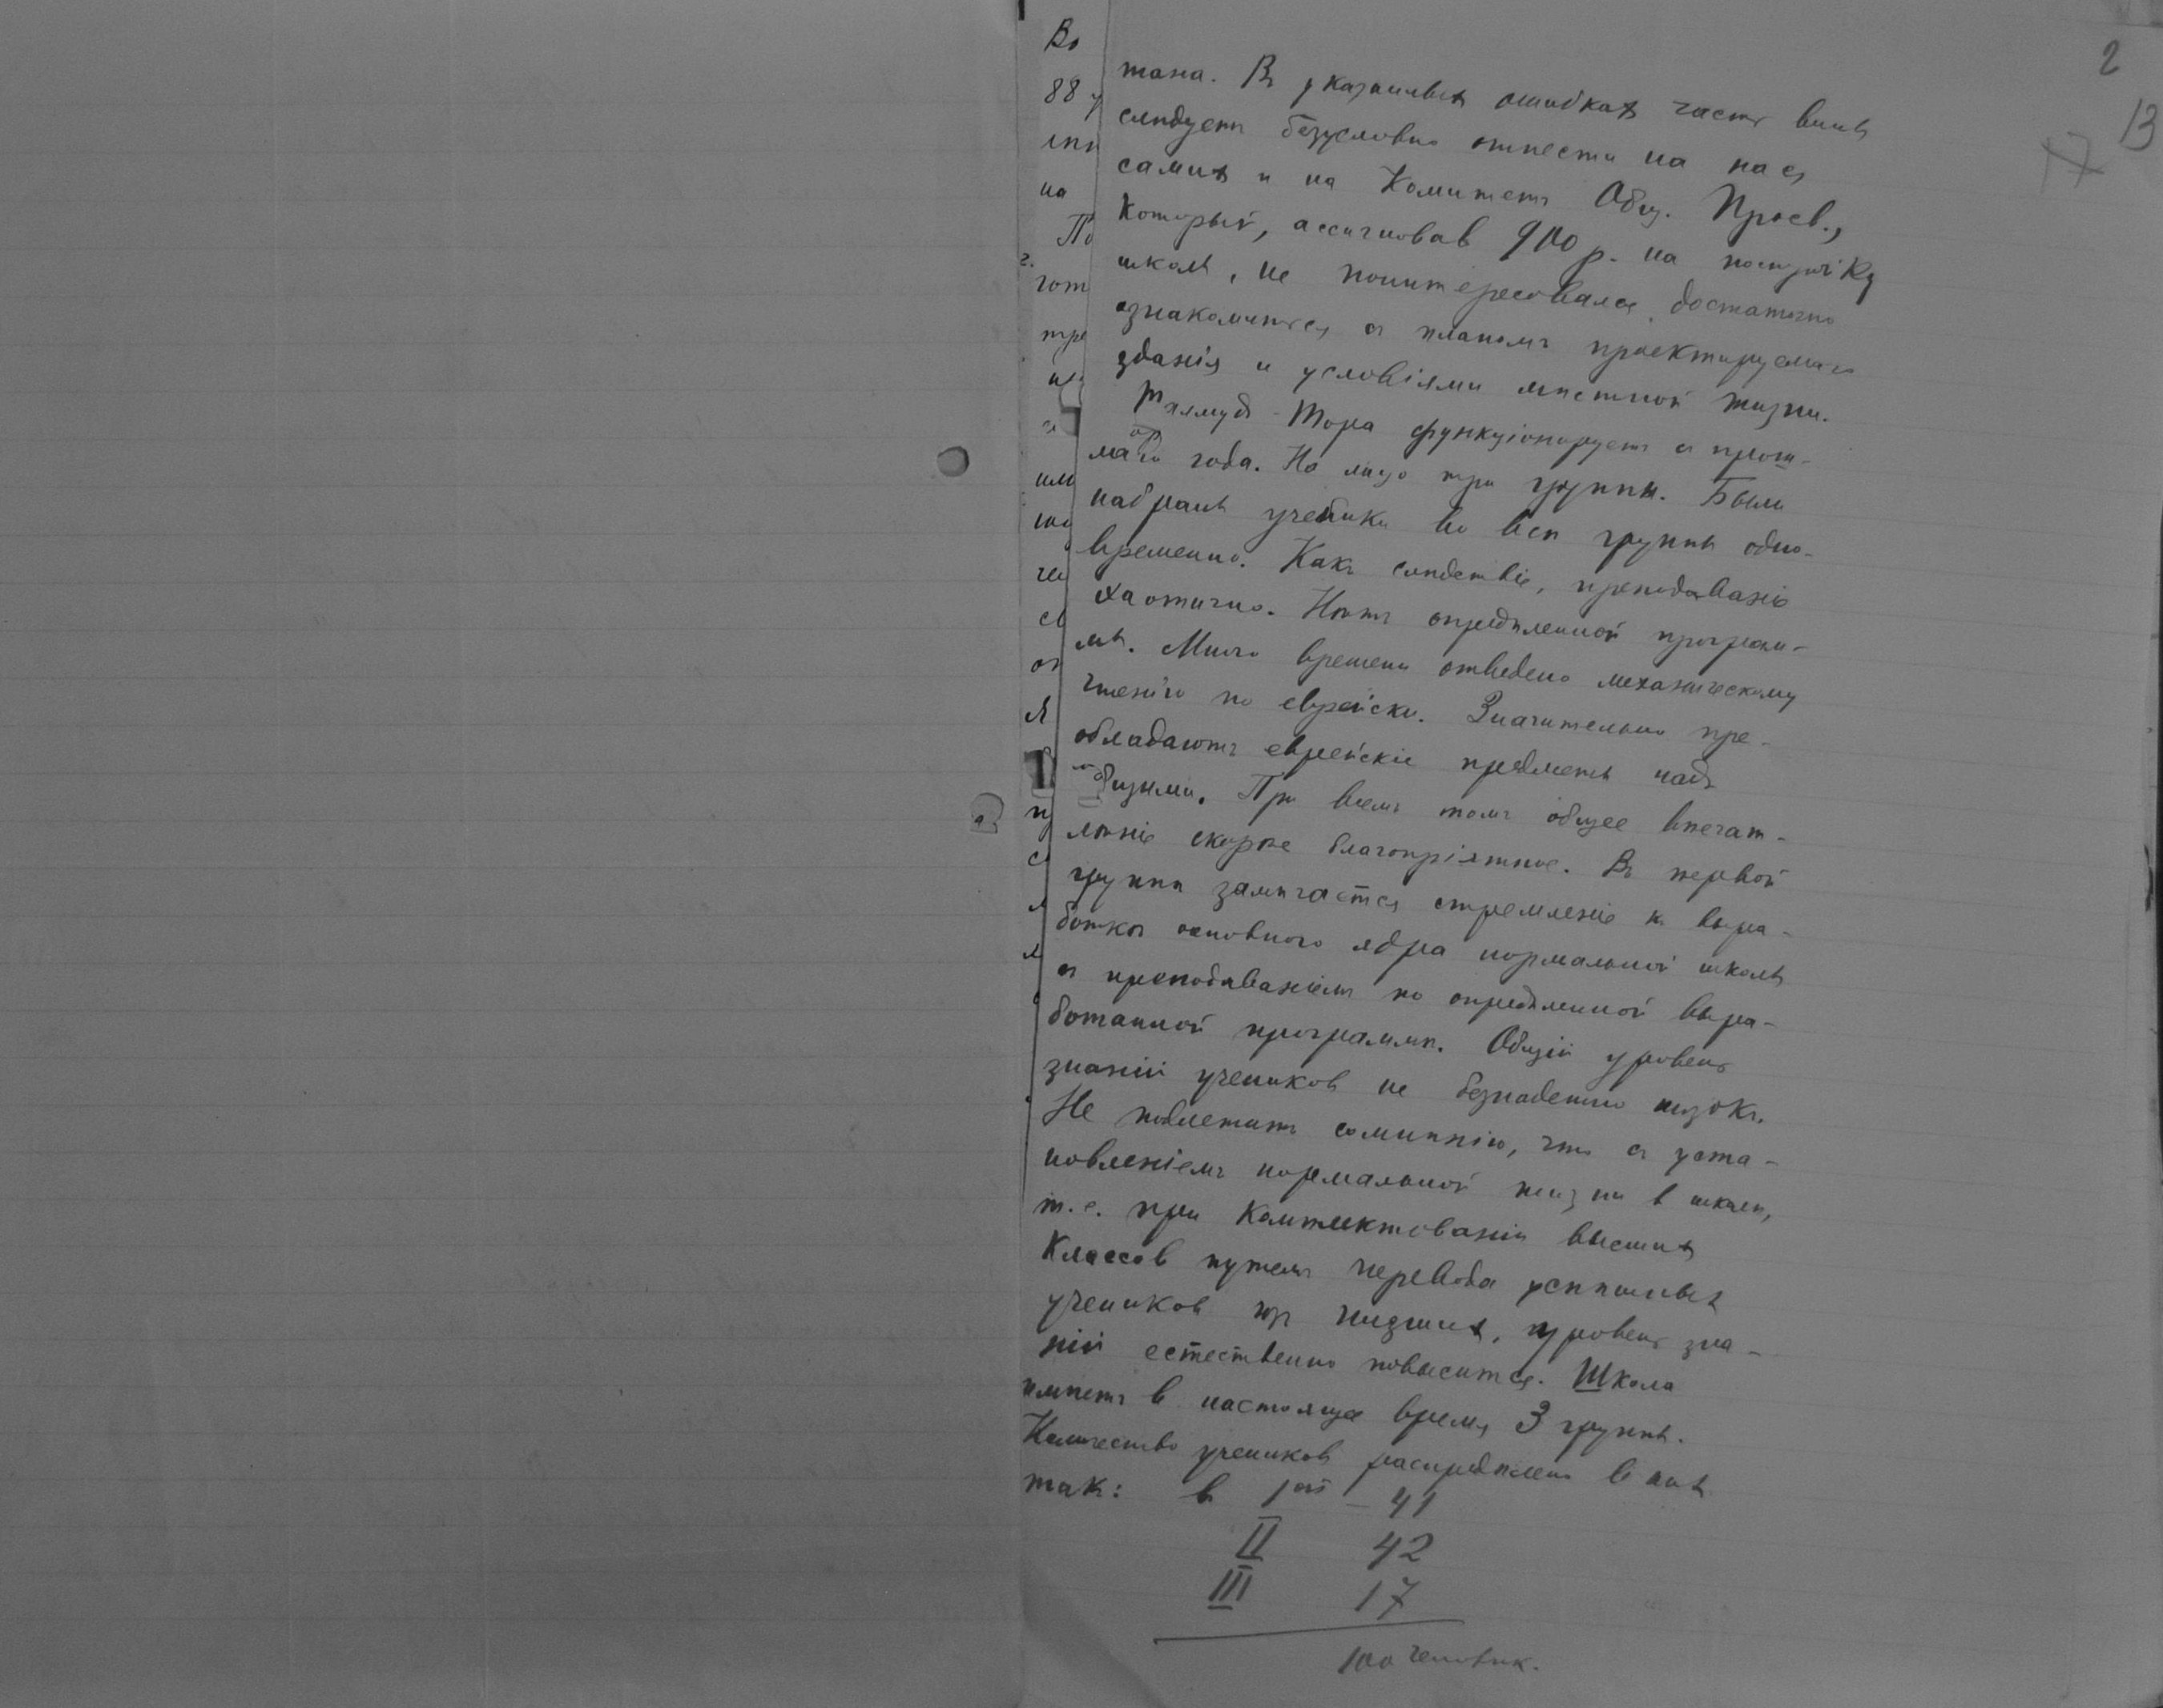 2
13
17
тана. Въ указанныхъ ошибкахъ часть вины
слѣдуетъ безусловно отнести на насъ
самихъ и на Комитетъ Общ. Просв.,
который, ассигновавъ 900 р. на постройку
школы, не поинтересовался достаточно
ознакомиться съ планомъ проектируемаго
зданія и условіями мѣстной жизни.
Талмудъ-Тора функціонируетъ съ прош-
лаго года. На лицо три группы. Были
набраны ученики во всѣ группы одно-
временно. Какъ слѣдствіе, преподаваніе
хаотично. Нѣтъ опредѣленной програм-
мы. Много времени отведено механическому
чтенію по еврейски. Значительно пре-
обладаютъ еврейскіе предметы надъ
общими. При всемъ томъ общее впечат-
лѣніе скорѣе благопріятное. Въ первой
группѣ замѣчается стремленіе къ выра-
боткѣ основного ядра нормальной школы
съ преподаваніемъ по опредѣленной выра-
ботанной программѣ. Общій уровень
знаній учениковъ не безнадежно низокъ.
Не подлежитъ сомнѣнію, что съ уста-
новленіемъ нормальной жизни в школѣ,
т.е. при комплектованіи высшихъ
классов путемъ перевода успѣшныхъ
учениковъ изъ низшихъ, уровень зна-
ній естественно повысится. Школа
имѣетъ в настоящее время 3 группы.
Количество учениковъ распредѣлено в нихъ
такъ: въ 1ой – 41
II 42
III 17
100 человѣк.